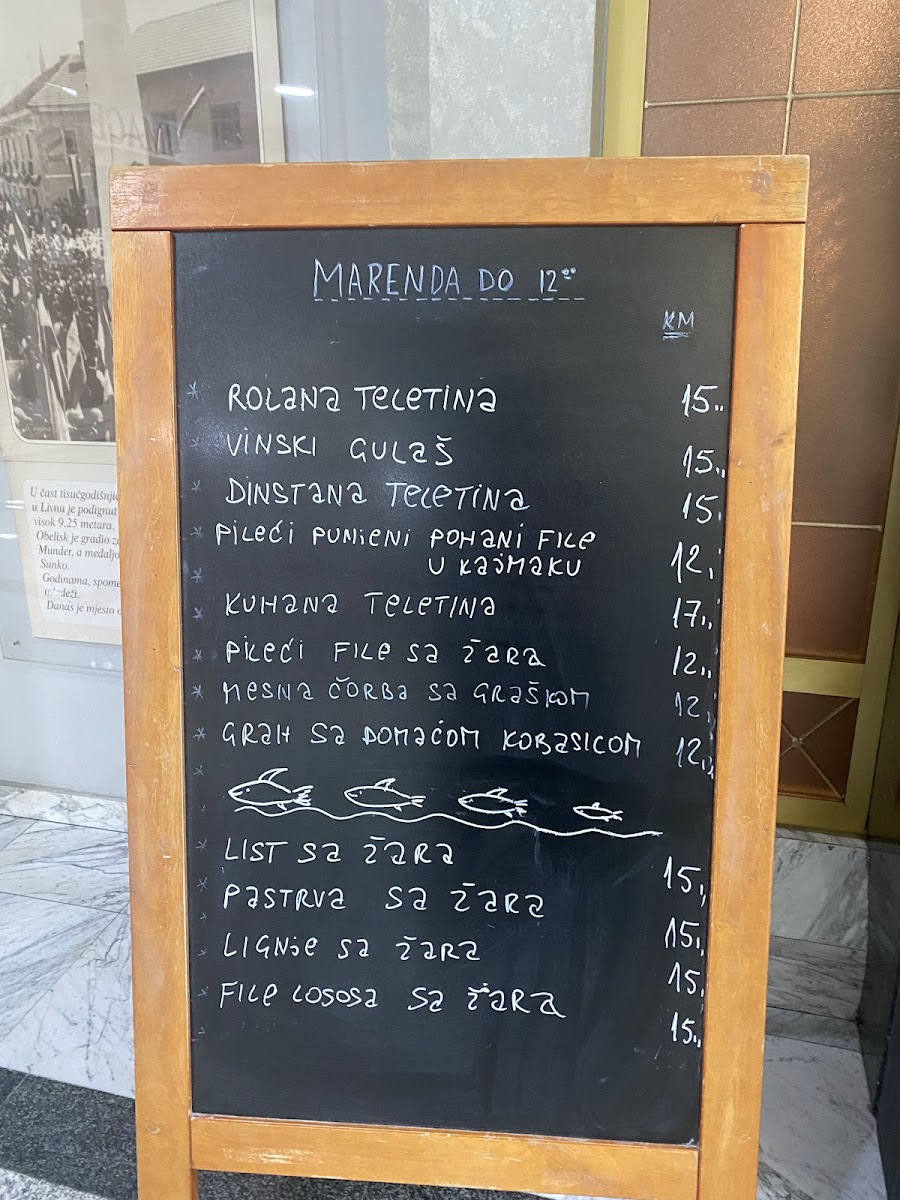 MARENDA DO 12⁰⁰
KM
* ROLANA TELETINA 15..
* VINSKI GULAŠ 15..
* DINSTANA TELETINA 15.
* PILEĆI PUNJENI POHANI FILE
U KAJMAKU 12.,
* KUHANA TELETINA 17..
* PILEĆI FILE SA ŽARA 12..
* MESNA ČORBA SA GRAŠKOM 12.,
* GRAH SA DOMAĆOM KOBASICOM 12.,
* LIST SA ŽARA 15.,
* PASTRVA SA ŽARA 15..
* LIGNJE SA ŽARA 15.
* FILE LOSOSA SA ŽARA 15..
U čast tisućgodišnji
u Livnu je podignut
visok 9,25 metara.
Obelisk je gradio
Munder, a medaljo
Sunko.
Godinama, spome
mladeži.
Danas je mjesto